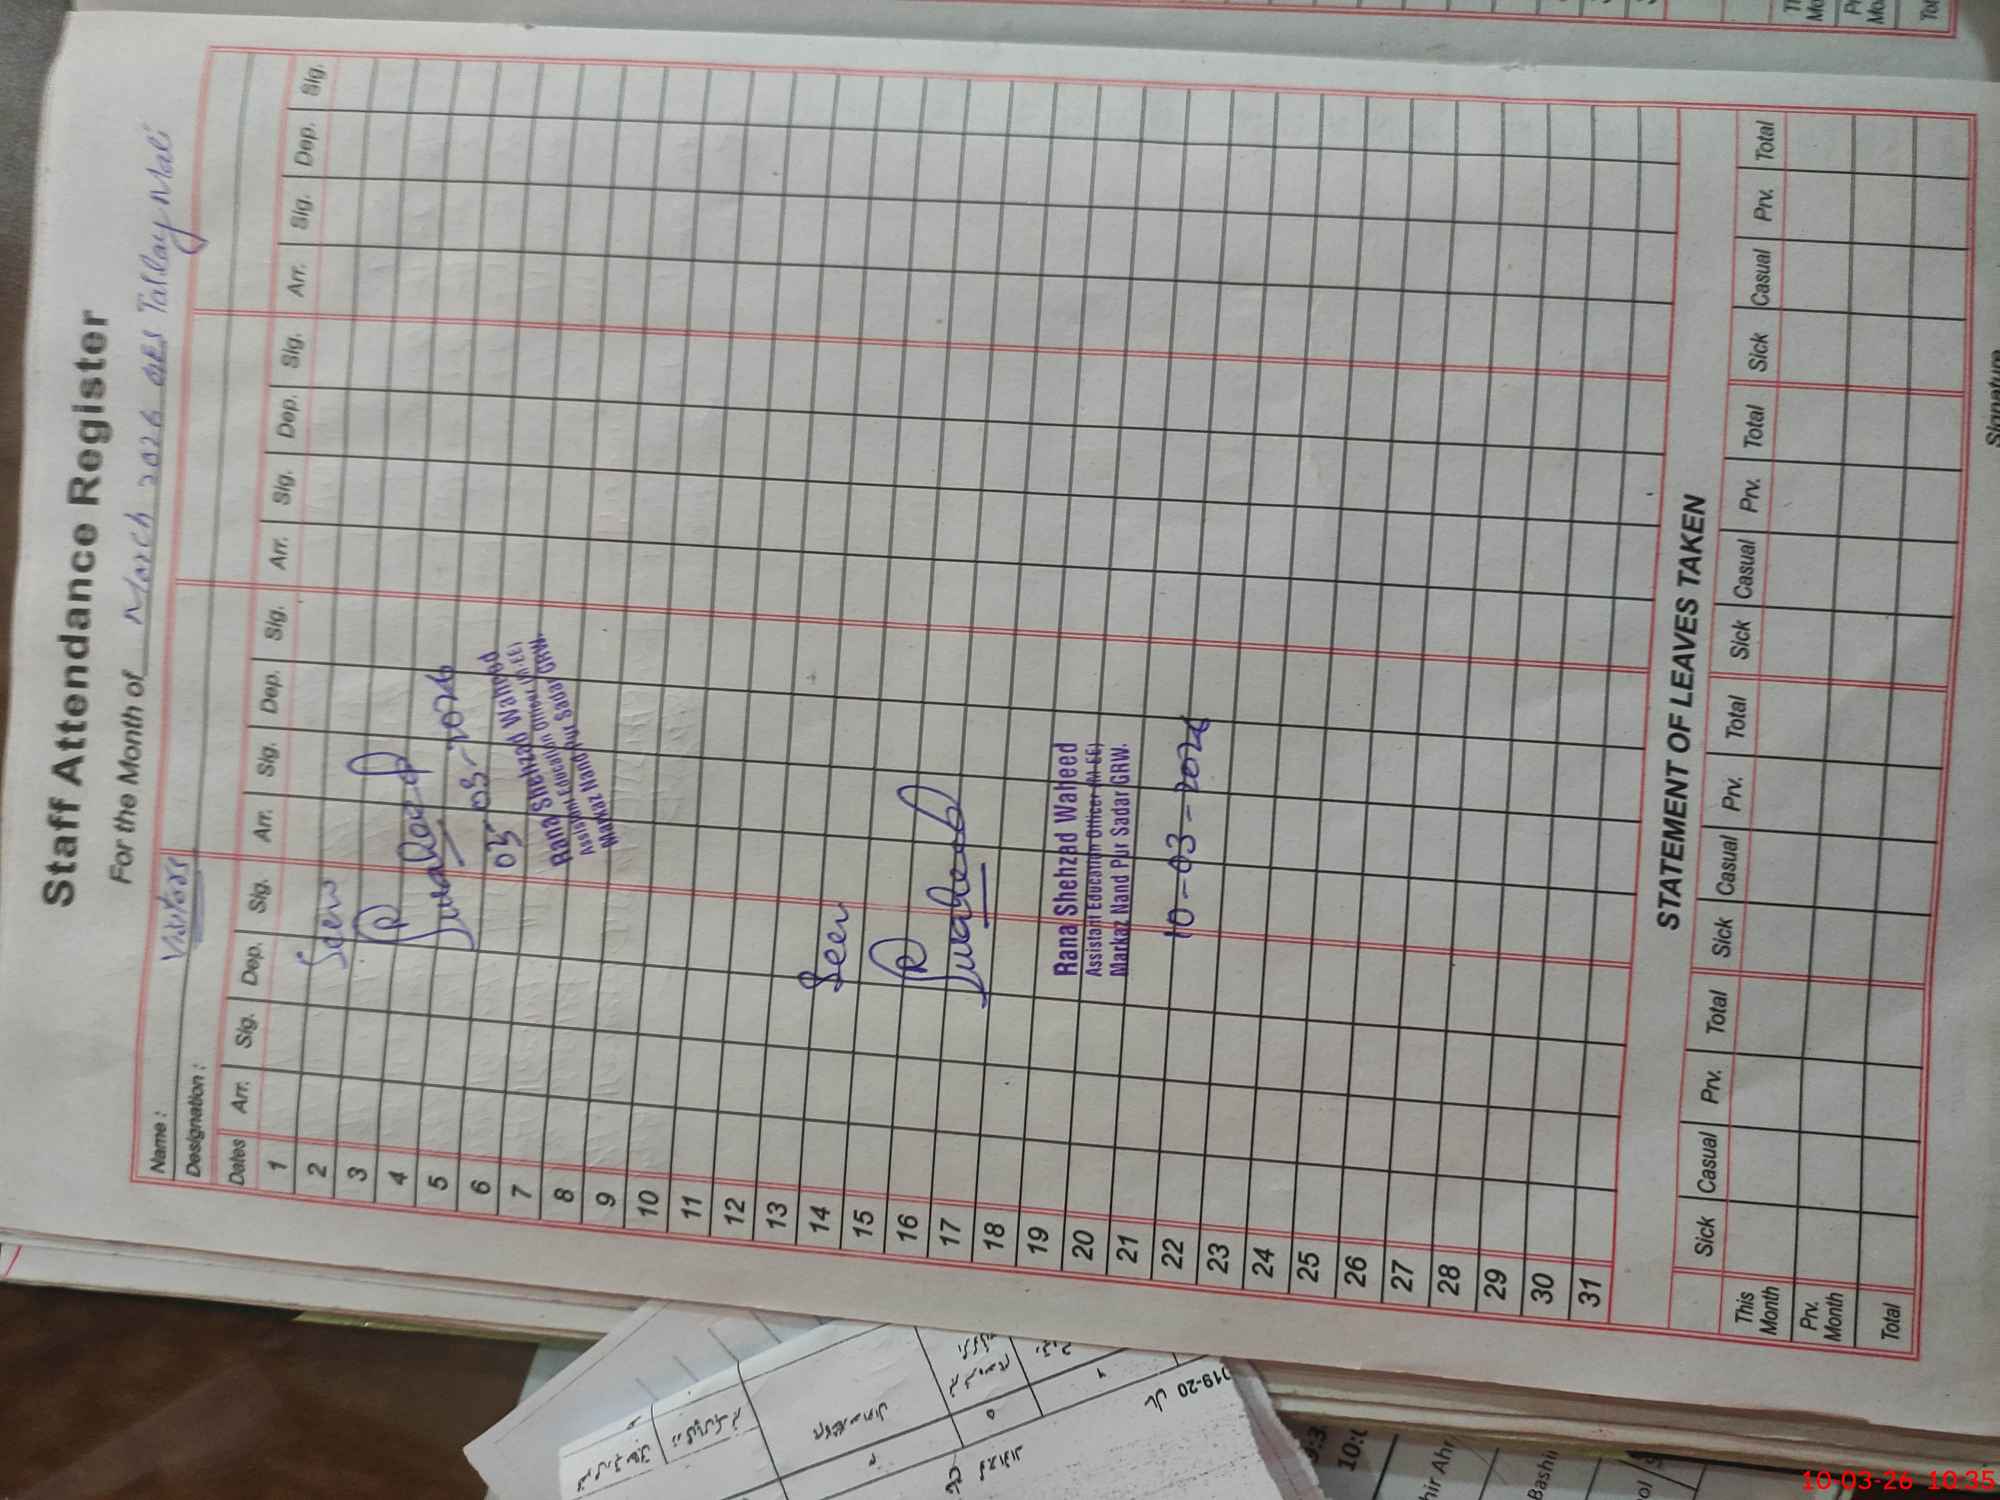 Staff Attendance Register
For the Month of March 2026 GES Tallay Mali
Name : Visitors
Designation :
Dates Arr. Sig. Dep. Sig. Arr. Sig. Dep. Sig. Arr. Sig. Dep. Sig. Arr. Sig. Dep. Sig.
1
2
Seen
3
4
5
6
05-03-2026
7
8
Rana Shehzad Waheed
Assistant Education Officer (M-EE)
Markaz Nand Pur Sadar GRW.
9
10
11
12
13
14
Seen
15
16
17
18
19
20
Rana Shehzad Waheed
Assistant Education Officer (M-EE)
Markaz Nand Pur Sadar GRW.
21
22
10-03-2026
23
24
25
26
27
28
29
30
31
STATEMENT OF LEAVES TAKEN
Sick Casual Prv. Total Sick Casual Prv. Total Sick Casual Prv. Total Sick Casual Prv. Total
This Month
Prv. Month
Total
Signature
019-20
Bashir
10-03-26 10:35